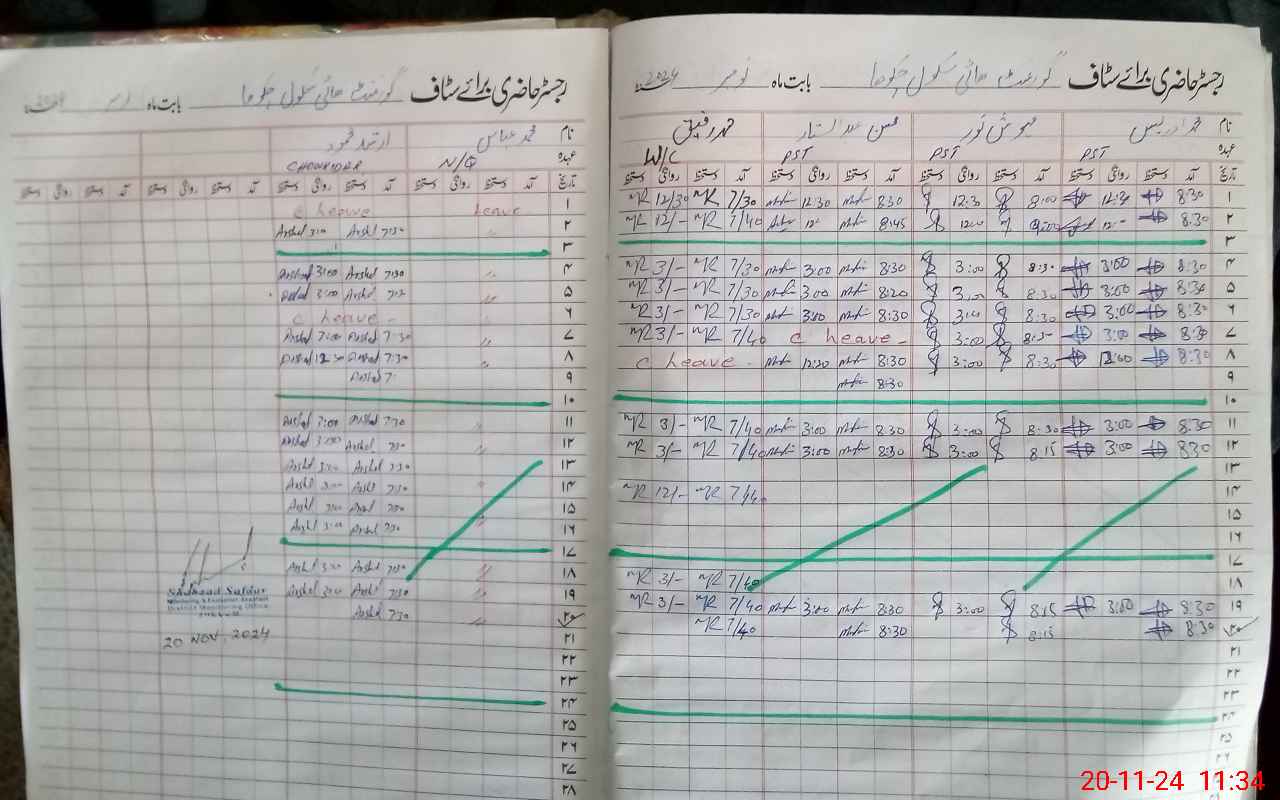 رجسٹر حاضری برائے سٹاف گورنمنٹ ھائی سکول چکوٹھا بابت ماہ نومبر 2024
نام محمد ادریس مہوش نور محسن عبدالستار محمد رفیق
عہدہ PST PST PST W/C
تاریخ آمد دستخط روانگی دستخط آمد دستخط روانگی دستخط آمد دستخط روانگی دستخط آمد دستخط روانگی دستخط
۱ 8:30 12:30 8:00 12:30 8:30 12:30 MR 7/30 MR 12/30
۲ 8:30 12:- 9:00 12:00 8:45 12:- MR 7/40 MR 12/-
۳
۴ 8:30 3:00 8:30 3:00 8:30 3:00 MR 7/30 MR 3/-
۵ 8:30 3:00 8:30 3:00 8:20 3:00 MR 7/30 MR 3/-
۶ 8:30 3:00 8:30 3:00 8:30 3:00 MR 7/30 MR 3/-
۷ 8:30 3:00 8:30 3:00 c heave MR 7/40 MR 3/-
۸ 8:30 12:00 8:30 3:00 8:30 12:30 c heave
۹ 8:30
۱۰
۱۱ 8:30 3:00 8:30 3:00 8:30 3:00 MR 7/40 MR 3/-
۱۲ 8:30 3:00 8:15 3:00 8:30 3:00 MR 7/40 MR 3/-
۱۳
۱۴ MR 7/40 MR 12/-
۱۵
۱۶
۱۷
۱۸ MR 7/40 MR 3/-
۱۹ 8:30 3:00 8:15 3:00 8:30 3:00 MR 7/40 MR 3/-
۲۰ 8:30 8:15 8:30 MR 7/40
۲۱
۲۲
۲۳
۲۴
۲۵
۲۶
رجسٹر حاضری برائے سٹاف گورنمنٹ ھائی سکول چکوٹھا بابت ماہ نومبر
نام محمد عباس ارشد محمود
عہدہ N/Q CHOWKIDAR
تاریخ آمد دستخط روانگی دستخط آمد دستخط روانگی دستخط آمد دستخط روانگی دستخط آمد دستخط روانگی دستخط
۱ heave c heave
۲ Arshd 7:30 Arshd 3:00
۳
۴ Arshd 7:30 Arshd 3:00
۵ Arshd Arshd 3:00
۶ c heave
۷ Arshd 7:30 Arshd 3:00
۸ Arshd 7:30 Arshd 12:30
۹ Arshd 7:
۱۰
۱۱ Arshd 7:30 Arshd 3:00
۱۲ Arshd 7:30 Arshd 3:00
۱۳ Arshd 7:30 Arshd 3:00
۱۴ Arshd 7:30 Arshd 3:00
۱۵ Arshd 7:30 Arshd 3:00
۱۶ Arshd 7:30 Arshd 3:00
۱۷
۱۸ Arshd 7:30 Arshd 3:00
۱۹ Arshd 7:30 Arshd 3:00
۲۰ Arshd 7:30
۲۱
۲۲
۲۳
۲۴
۲۵
۲۶
۲۷
۲۸
Shahzad Safdar
Monitoring & Evaluation Assistant
District Monitoring Office
20 NOV, 2024
20-11-24 11:34